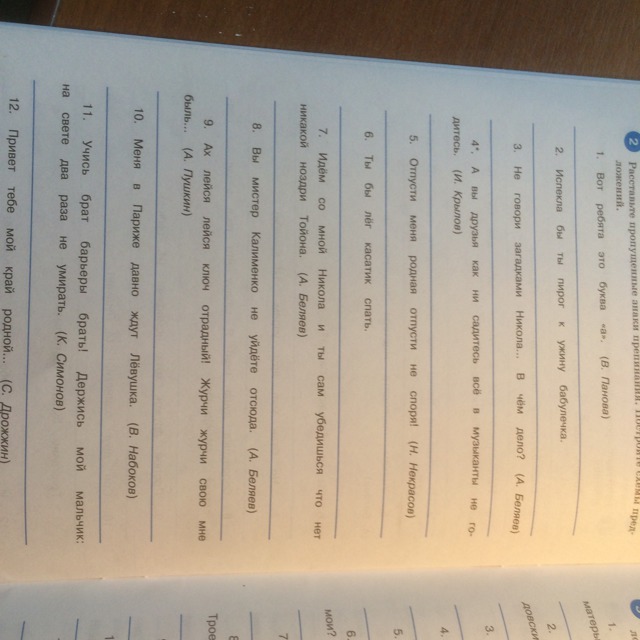 2 Расставьте пропущенные знаки препинания. Постройте схемы пред-
ложений.
1. Вот ребята это буква «а». (В. Панова)
2. Испекла бы ты пирог к ужину бабулечка.
3. Не говори загадками Никола... В чём дело? (А. Беляев)
4*. А вы друзья как ни садитесь всё в музыканты не го-
дитесь. (И. Крылов)
5. Отпусти меня родная отпусти не спори! (Н. Некрасов)
6. Ты бы лёг касатик спать.
7. Идём со мной Никола и ты сам убедишься что нет
никакой ноздри Тойона. (А. Беляев)
8. Вы мистер Калименко не уйдёте отсюда. (А. Беляев)
9. Ах лейся лейся ключ отрадный! Журчи журчи свою мне
быль... (А. Пушкин)
10. Меня в Париже давно ждут Лёвушка. (В. Набоков)
11. Учись брат барьеры брать! Держись мой мальчик:
на свете два раза не умирать. (К. Симонов)
12. Привет тебе мой край родной... (С. Дрожжин)
1.
матеры
2.
довски
3.
4.
5.
6.
мои?
7
8
Трое